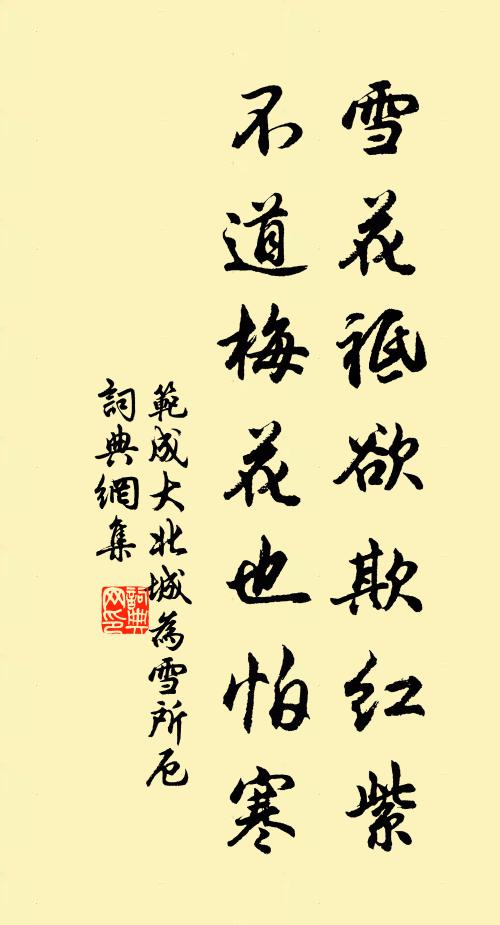 雪花祗欲欺红紫
不道梅花也怕寒
範成大北城為雪所厄
詞典網集
詞典
网印